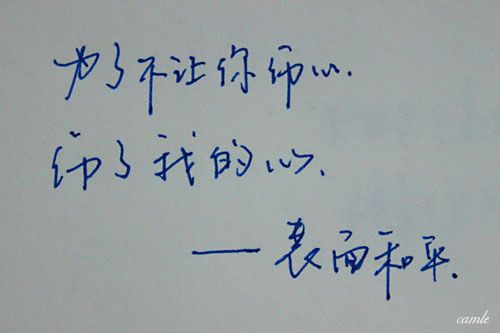 为了不让你伤心.
伤了我的心.
——表面和平.
camle